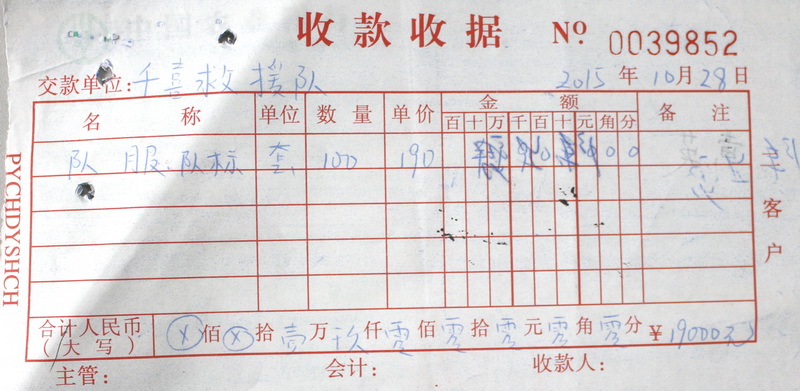 收款收据 Nº 0039852
交款单位:千喜救援队 2015年10月28日
名称 单位 数量 单价 金额 备注
百十万千百十元角分
队服.队标 套 100 190 0 0
PYCHDYSHCH
客户
合计人民币(大写) ⓧ佰ⓧ拾壹万玖仟零佰零拾零元零角零分 ¥19000元
主管: 会计: 收款人: